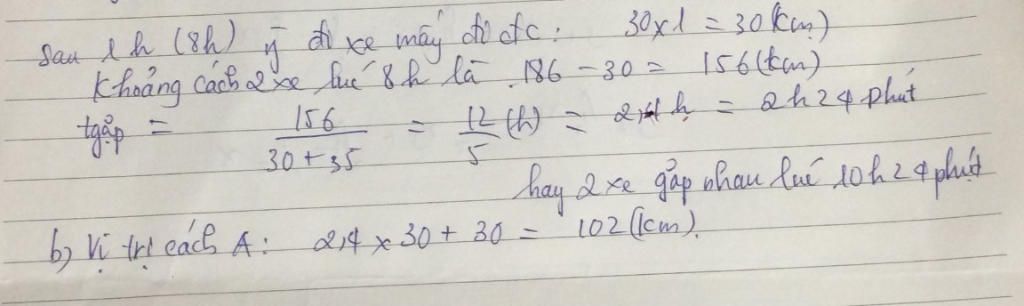 Sau 1 h (8h) ý đi xe máy đi đc: 30x1 = 30(km)
Khoảng cách 2 xe lúc 8h là 186 - 30 = 156(km)
tgặp = 156/(30+35) = 12/5 (h) = 2,4 h = 2h24 phút
hay 2 xe gặp nhau lúc 10h24 phút
b) Vị trí cách A: 2,4 x 30 + 30 = 102(km).